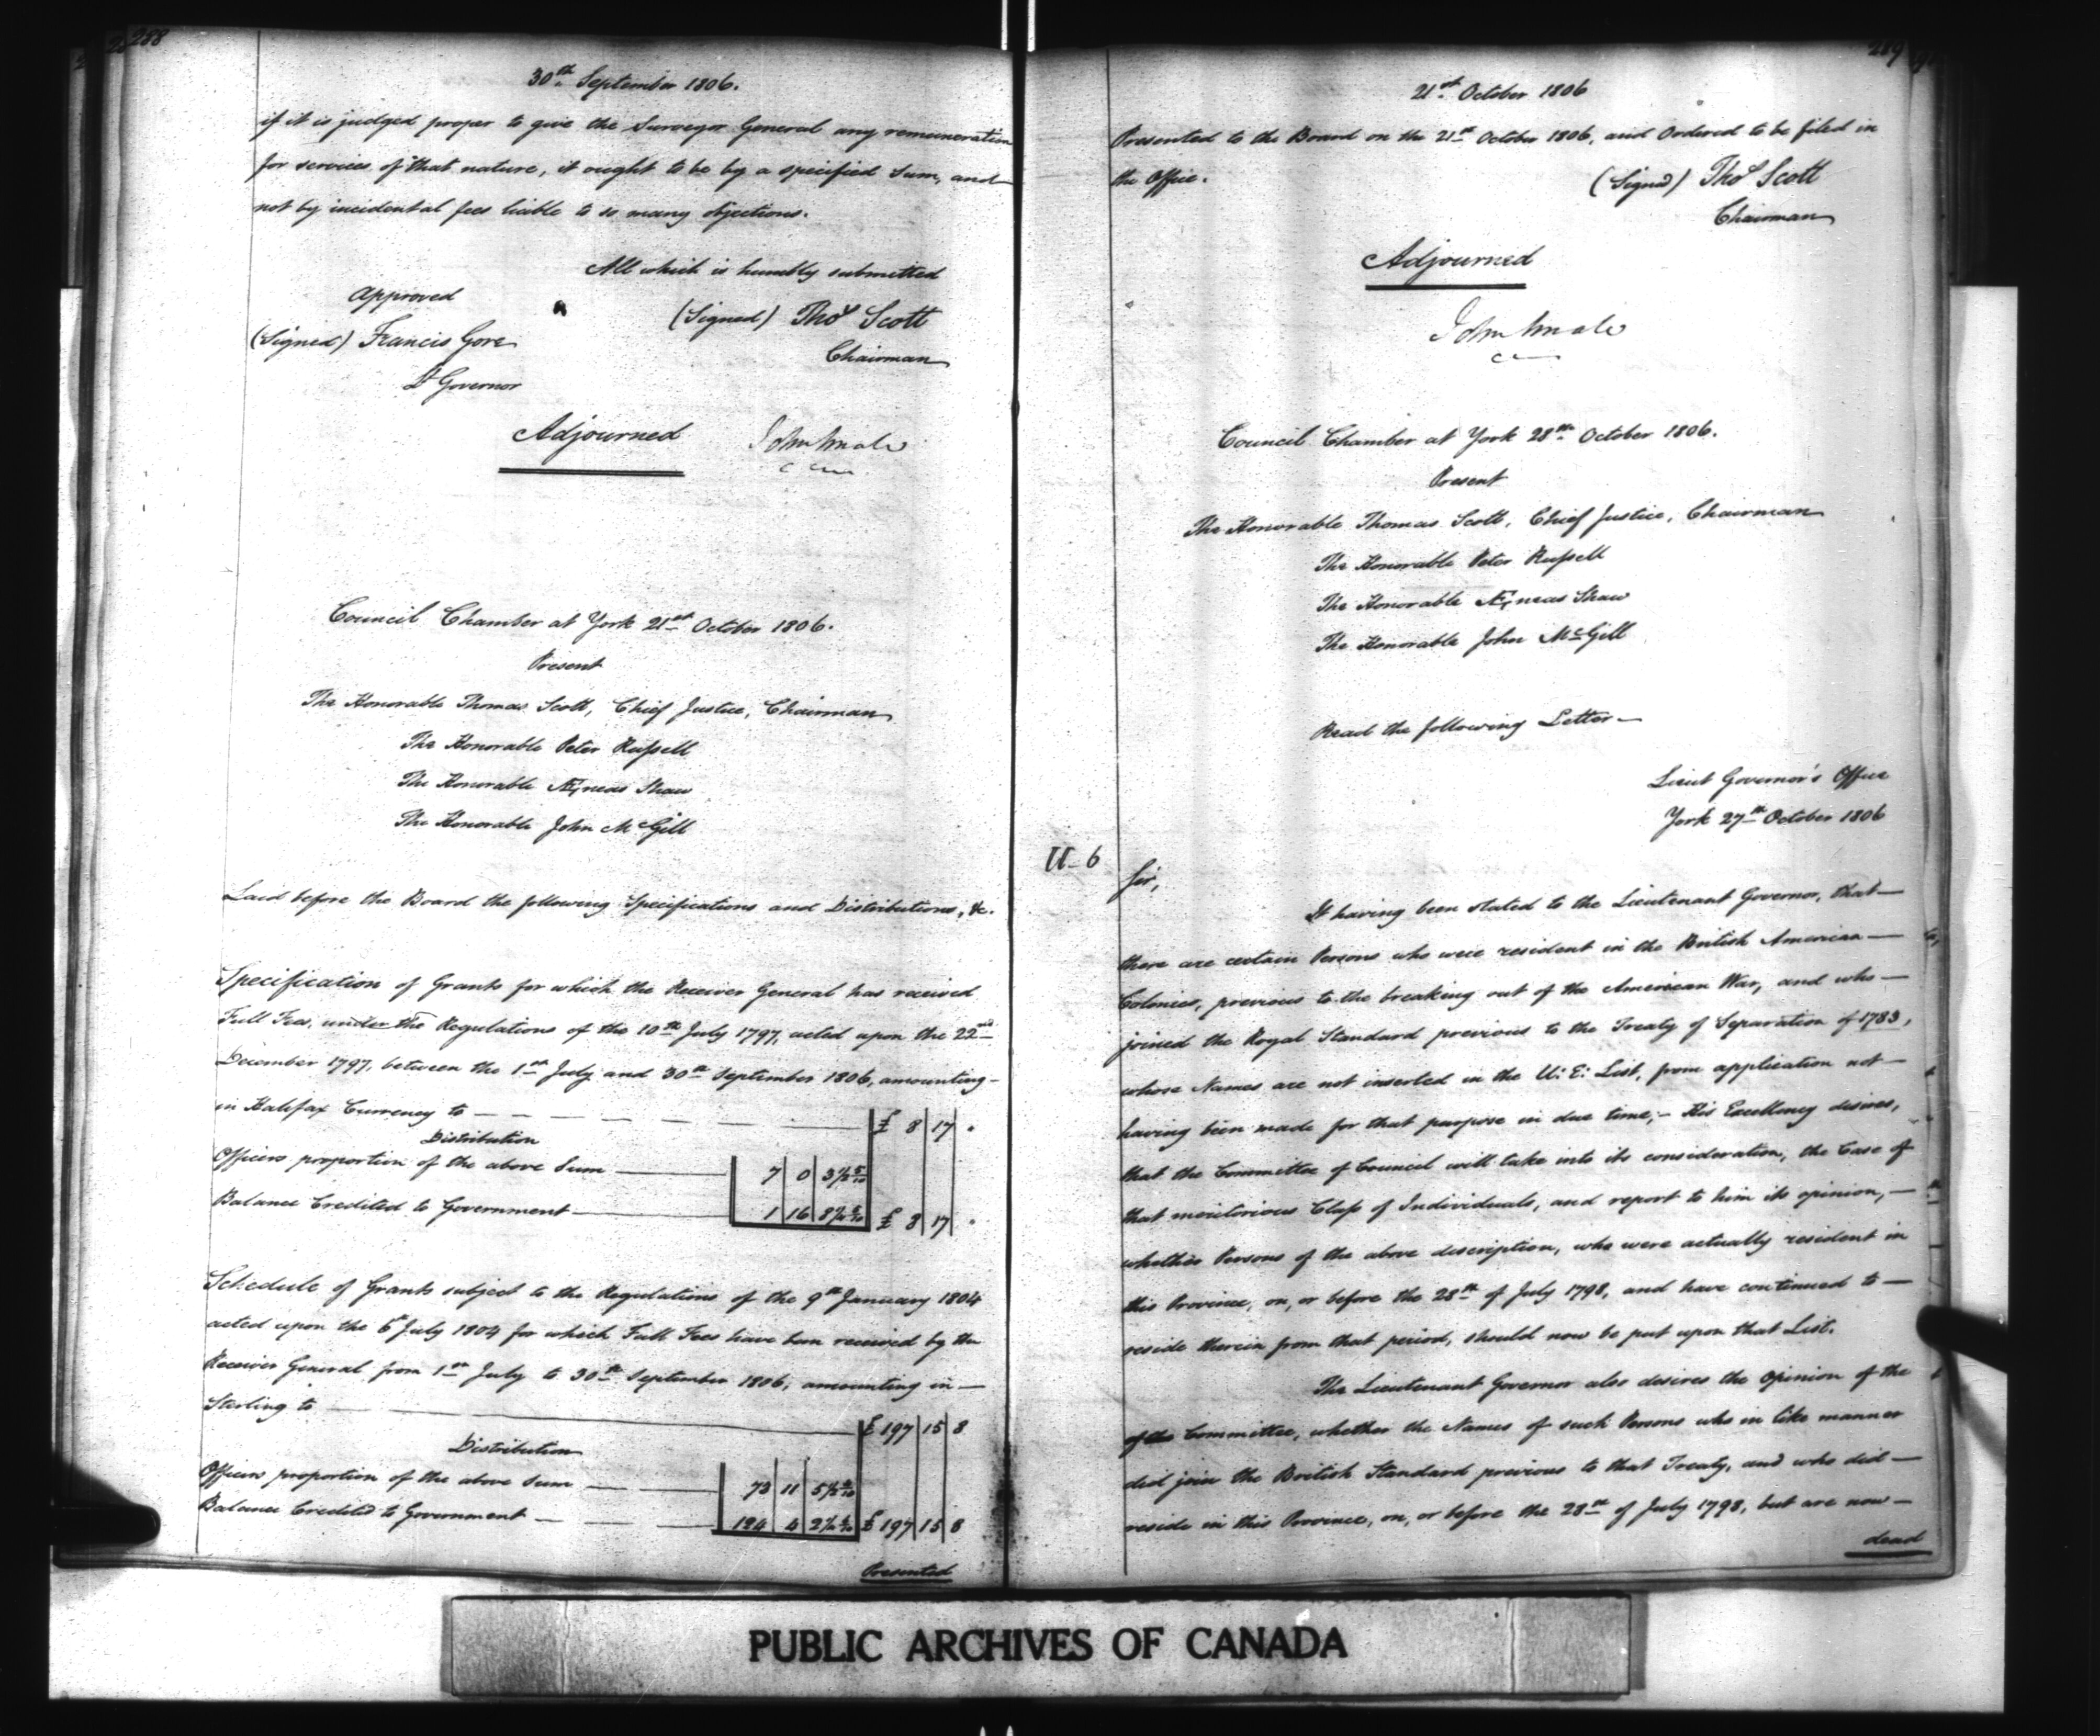 288
30th September 1806.
if it is judged proper to give the Surveyor General any remuneration
for services of that nature, it ought to be by a specified Sum, and
not by incidental fees liable to so many objections.
All which is humbly submitted
Approved
(Signed) Thos Scott
(Signed) Francis Gore
Chairman
Lt Governor
Adjourned
John Small
Council Chamber at York 21st October 1806.
Present
The Honorable Thomas Scott, Chief Justice, Chairman
The Honorable Peter Russell
The Honorable Æneas Shaw
The Honorable John McGill
Laid before the Board the following Specifications and Distributions, &c.
Specification of Grants for which the Receiver General has received
Full Fees, under the Regulations of the 10th July 1797, acted upon the 22nd
December 1797, between the 1st July and 30th September 1806, amounting
in Halifax Currency to £ 8 17 "
Distribution
Officers proportion of the above Sum 7 0 3½
Balance Credited to Government 1 16 8 £ 8 17 "
Schedule of Grants subject to the Regulations of the 9th January 1804
acted upon the 6th July 1804 for which Full Fees have been received by the
Receiver General, from 1st July to 30th September 1806, amounting in
Sterling to £ 197 15 8
Distribution
Officers proportion of the above sum 73 11 5½
Balance Credited to Government 124 4 2 £ 197 15 8
Presented
289
21st October 1806
Presented to the Board on the 21st October 1806, and Ordered to be filed in
the Office.
(Signed) Thos Scott
Chairman
Adjourned
John Small
Council Chamber at York 28th October 1806.
Present
The Honorable Thomas Scott, Chief Justice, Chairman
The Honorable Peter Russell
The Honorable Æneas Shaw
The Honorable John McGill
Read the following Letter
Lieut Governor's Office
York 27th October 1806
U-6
Sir,
It having been stated to the Lieutenant Governor, that
there are certain Persons who were resident in the British American
Colonies, previous to the breaking out of the American War, and who
joined the Royal Standard previous to the Treaty of Separation of 1783,
whose Names are not inserted in the U: E: List, from application not
having been made for that purpose in due time; - His Excellency desires,
that the Committee of Council will take into its consideration, the Case of
that meritorious Class of Individuals, and report to him its opinion,
whether Persons of the above description, who were actually resident in
this Province, on, or before the 28th of July 1798, and have continued to
reside therein from that period, should now be put upon that List.
The Lieutenant Governor also desires the Opinion of the
of the Committee, whether the Names of such Persons who in like manner
did join the British Standard previous to that Treaty, and who did
reside in this Province, on, or before the 28th of July 1798, but are now
dead
PUBLIC ARCHIVES OF CANADA